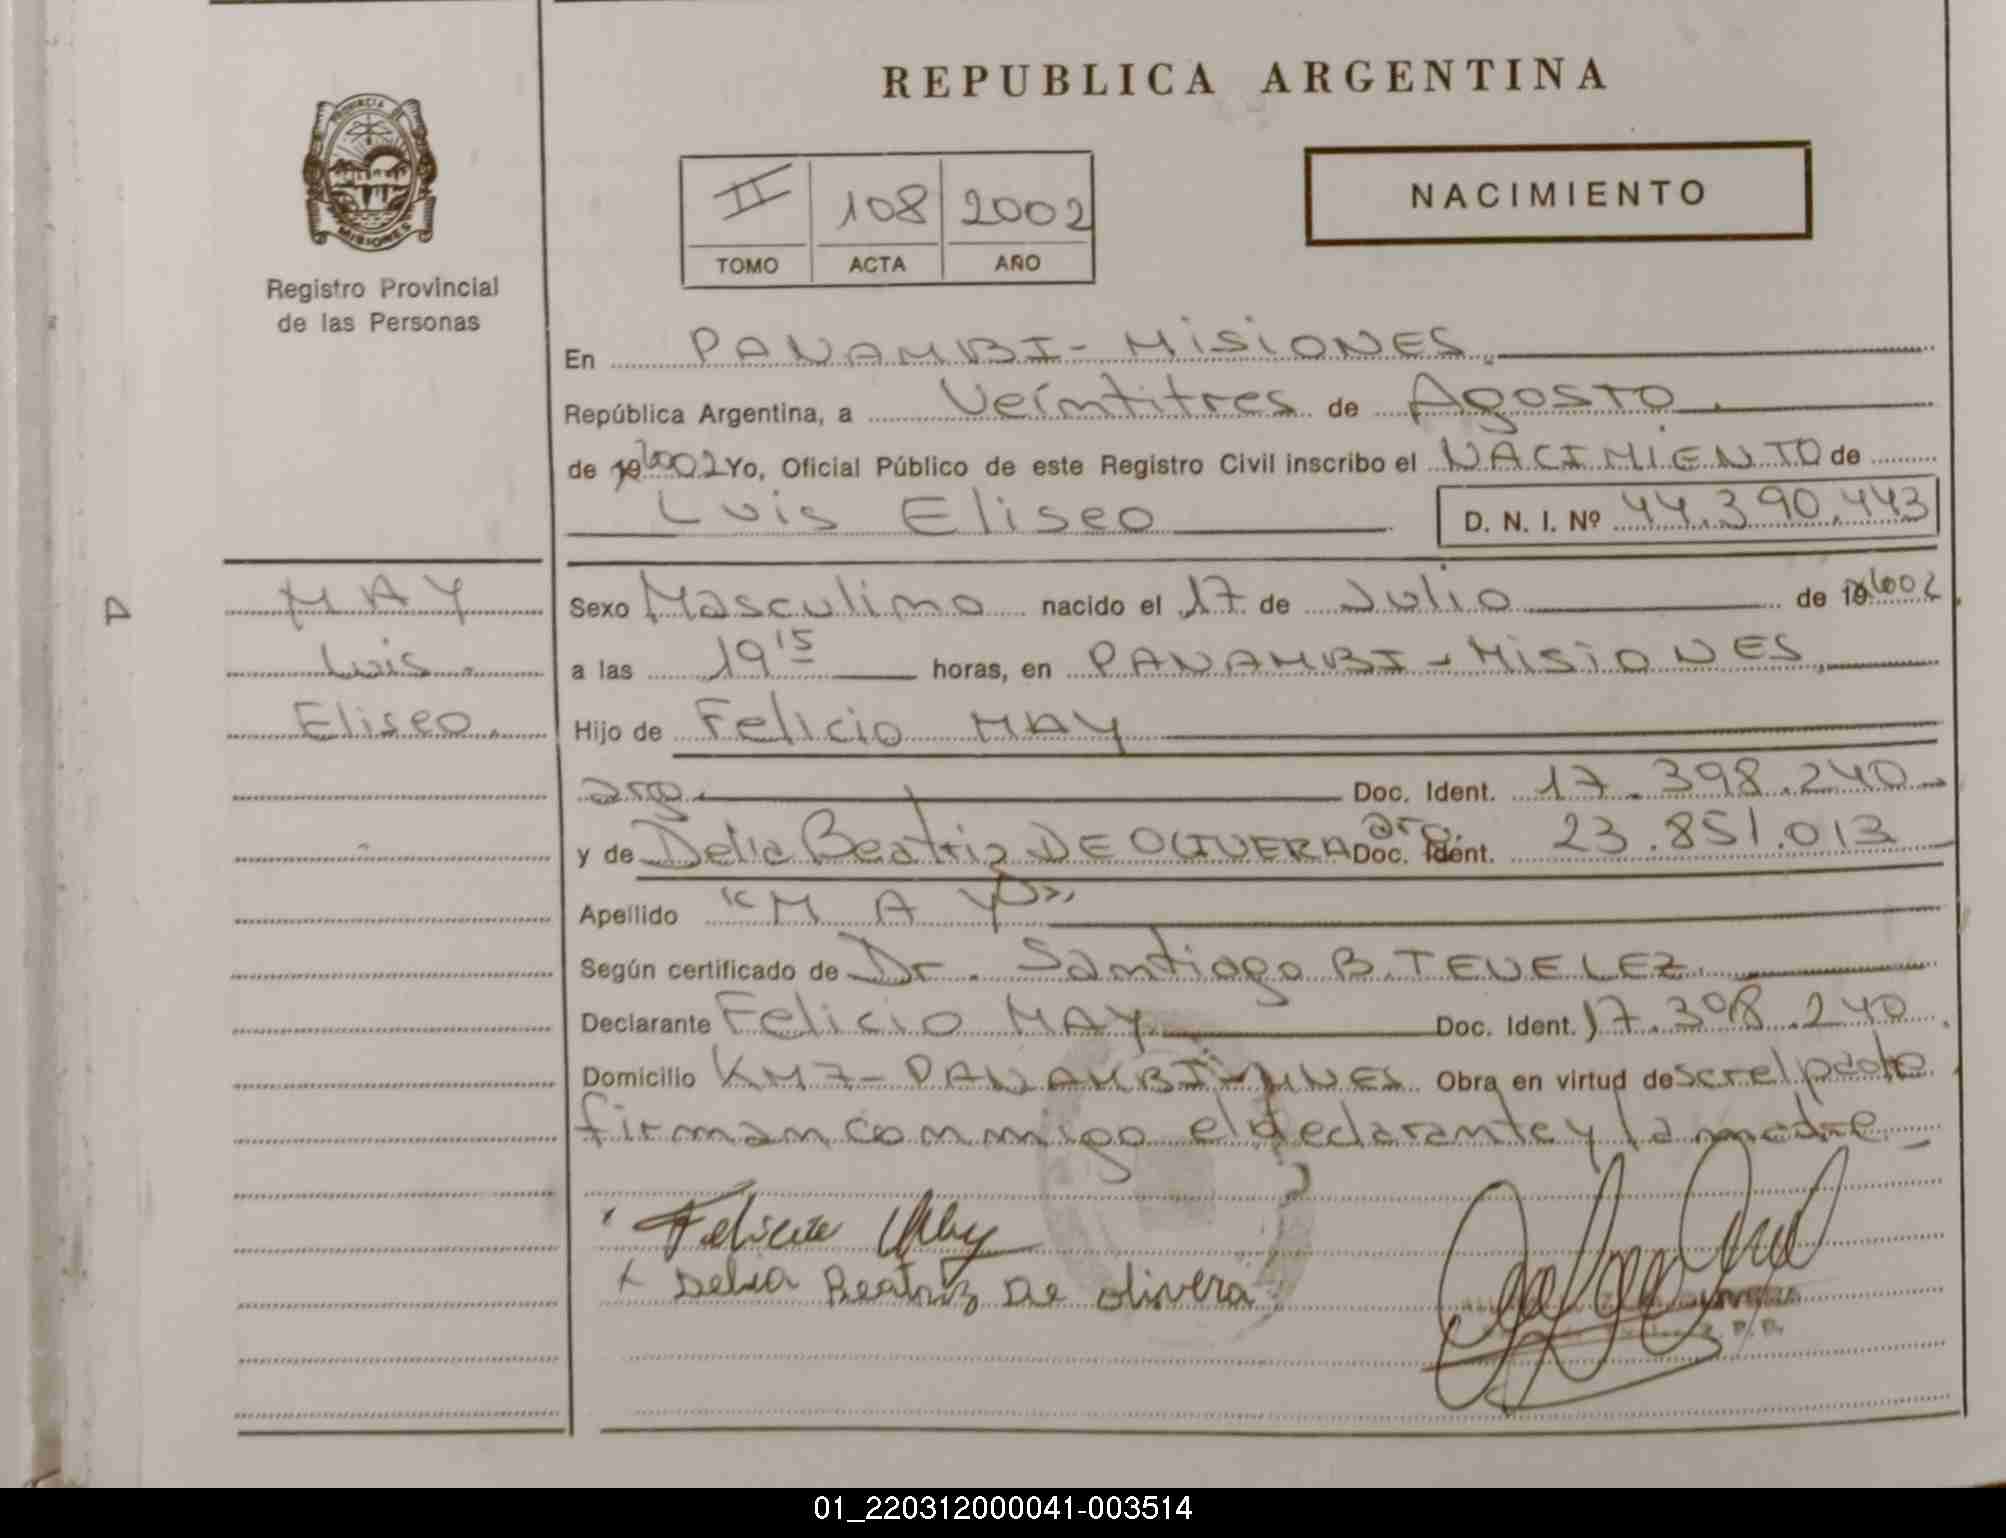 REPUBLICA ARGENTINA
PROVINCIA
MISIONES
Registro Provincial
de las Personas
NACIMIENTO
II 108 2002
TOMO ACTA AÑO
En PANAMBI - MISIONES
República Argentina, a Veintitres de Agosto
de 2002 Yo, Oficial Público de este Registro Civil inscribo el NACIMIENTO de
Luis Eliseo D. N. I. Nº 44.390.443
MAY
Luis
Eliseo.
A
Sexo Masculino nacido el 17 de Julio de 2002
a las 19 15 horas, en PANAMBI - MISIONES
Hijo de Felicio MAY
arg. Doc. Ident. 17.398.240
y de Delia Beatriz DE OLIVERA arg. Doc. Ident. 23.851.013
Apellido "MAY"
Según certificado de Dr. Santiago B. TEVELEZ
Declarante Felicio MAY Doc. Ident. 17.398.240
Domicilio KM 7 - PANAMBI - MNES Obra en virtud de ser el padre
firman conmigo el declarante y la madre
Felicio May
x Delia Beatriz De Olivera
01_220312000041-003514